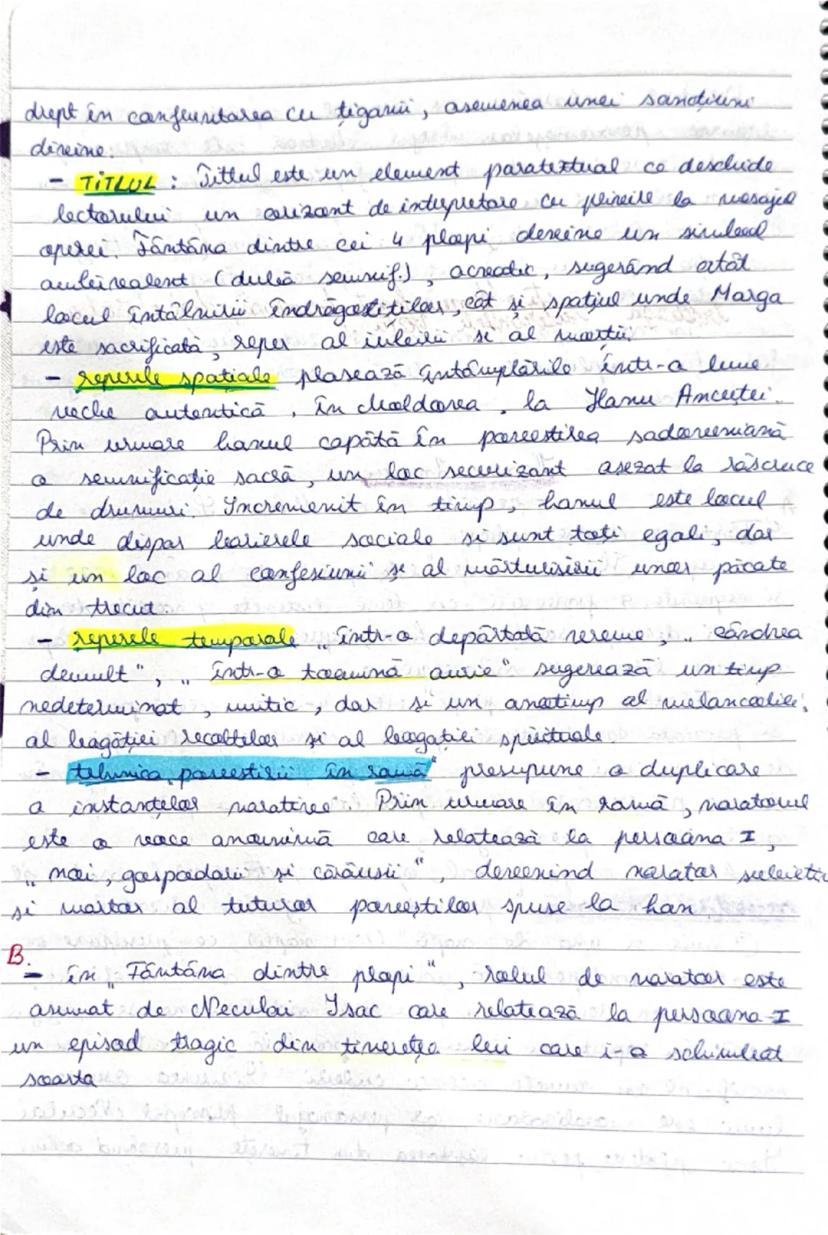 drept în confruntarea cu țiganii, asemenea unei sancțiuni
divine.
- TITLUL : Titlul este un element paratextual ce deschide
lectorului un orizont de intrepretare cu privire la mesajul
operei. Fântâna dintre cei 4 plopi devine un simbol
ambivalent (dublă semnif.), acvatic, sugerând atât
locul întâlnirii îndrăgostiților, cât și spațiul unde Marga
este sacrificată, reper al iubirii si al morții.
- reperele spațiale plasează întâmplările într-o lume
veche autentică, în Moldova, la Hanu Ancuței.
Prin urmare hanul capătă în povestirea sadoveniană
o semnificație sacră, un loc securizant asezat la răscruce
de drumuri. Incremenit în timp, hanul este locul
unde dispar barierele sociale si sunt toți egali, dar
și un loc al confesiunii și al mărturisirii unor păcate
din trecut
- reperele temporale „într-o depărtată vreme, „cândva
demult", „într-o toamnă aurie" sugerează un timp
nedeterminat, mitic, dar și un anotimp al melancoliei,
al bogăției recoltelor și al bogației spirituale.
- tehnica povestirii în ramă" presupune o duplicare
a instanțelor narative. Prin urmare în ramă, naratorul
este o voce anonimă care relatează la persoana I,
„noi, gospodarii și cărăusii", devenind narator subiectiv
si martor al tuturor poveștilor spuse la han
B.
- în „Fântâna dintre plopi", rolul de narator este
asumat de Neculai Isac care relatează la persoana I
un episod tragic din tinerețea lui care i-a schimbat
soarta